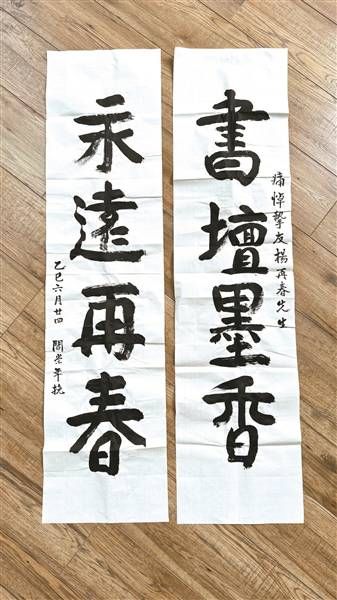 書壇墨香
痛悼摯友楊再春先生
永遠再春
乙巳六月廿四 閻崇年挽